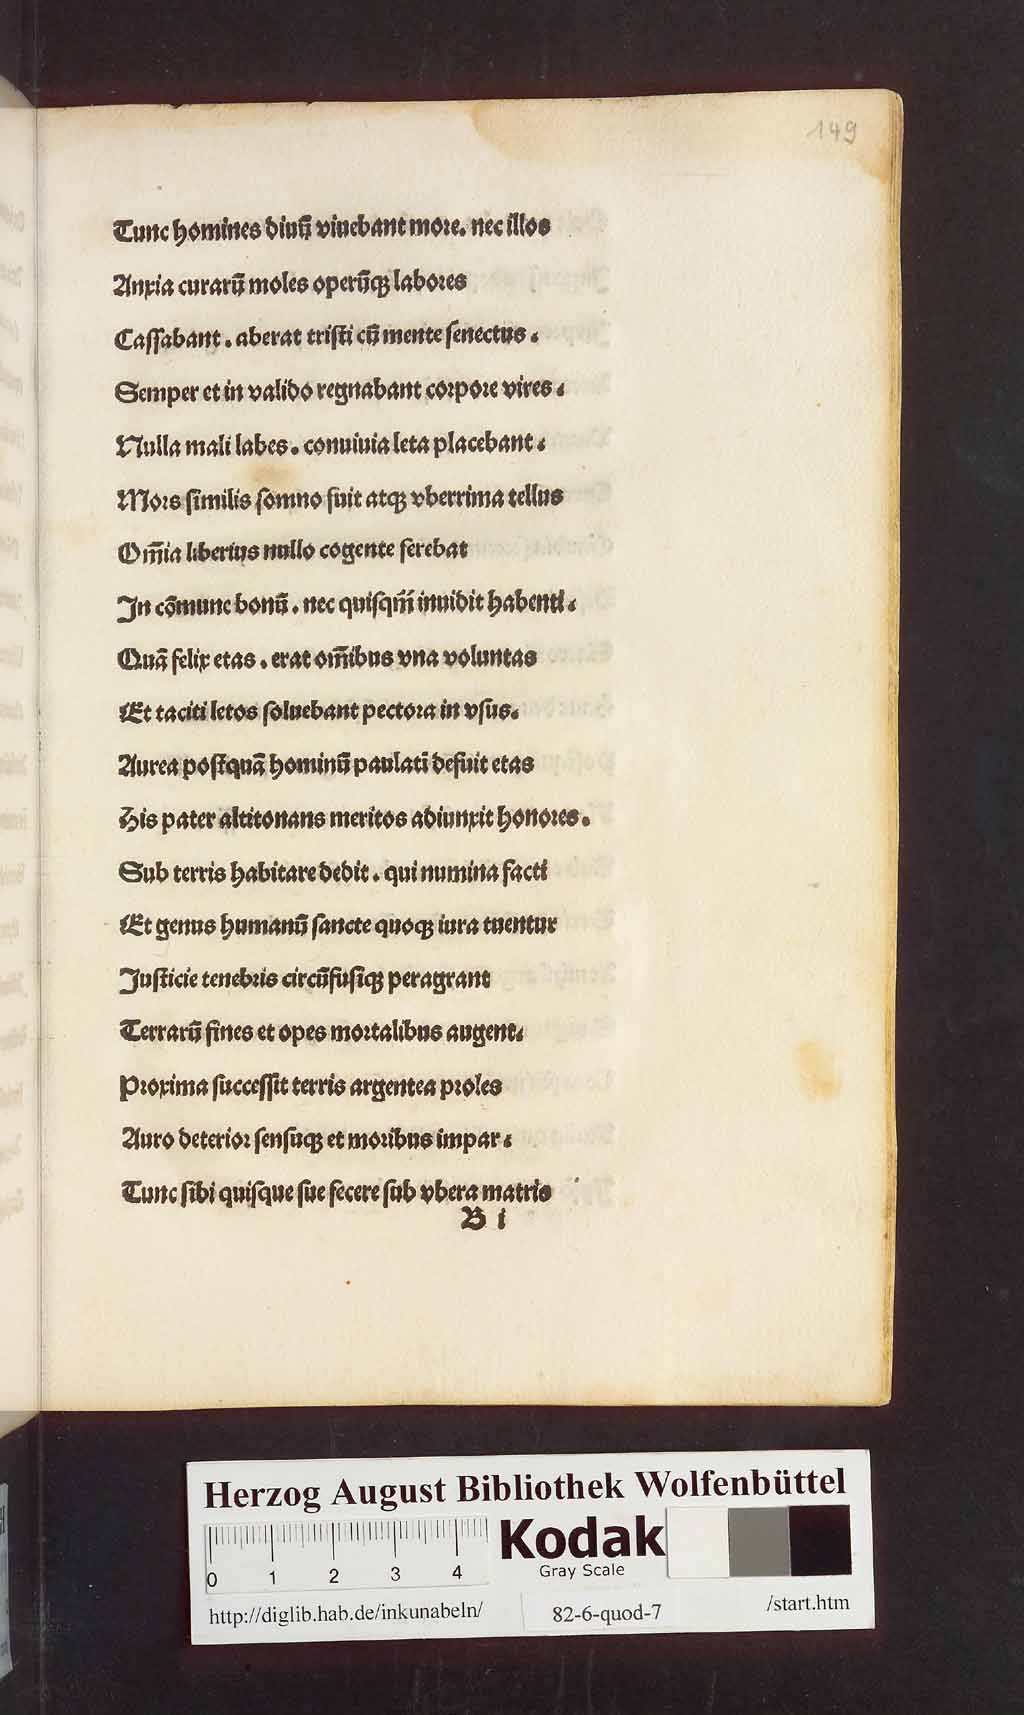 149
Tunc homines diuū viuebant more. nec illos
Anxia curarū moles operūqꝫ labores
Cassabant. aberat tristi cū mente senectus.
Semper et in valido regnabant corpore vires.
Nulla mali labes. conuiuia leta placebant.
Mors similis somno fuit atqꝫ vberrima tellus
Om̄ia liberius nullo cogente ferebat
In cōmune bonū. nec quisqm̄ inuidit habenti.
Quā felix etas. erat om̄ibus vna voluntas
Et taciti letos soluebant pectora in vsus.
Aurea postquā hominū paulatī defuit etas
His pater altitonans meritos adiunxit honores.
Sub terris habitare dedit. qui numina facti
Et genus humanū sancte quoqꝫ iura tuentur
Justicie tenebris circūfusiqꝫ peragrant
Terrarū fines et opes mortalibus augent.
Proxima successit terris argentea proles
Auro deterior sensuqꝫ et moribus impar.
Tunc sibi quisque sue fecere sub vbera matris
B i
Herzog August Bibliothek Wolfenbüttel
0 1 2 3 4
Kodak
Gray Scale
http://diglib.hab.de/inkunabeln/ 82-6-quod-7 /start.htm